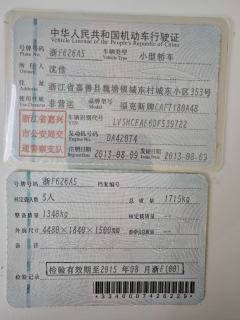 中华人民共和国机动车行驶证
Vehicle License of the People's Republic of China
号牌号码 浙F626A5 车辆类型 小型轿车
Plate No. Vehicle Type
所有人 沈佳
Owner
住址 浙江省嘉善县魏塘镇城东村城东小区353号
Address
使用性质 非营运 品牌型号 福克斯牌CAF7180A48
Model
浙江省嘉兴市公安局交通警察支队
车辆识别代号 LVSHCFAE6DF539722
VIN
发动机号码 DA42074
Engine No.
注册日期 2013-08-09 发证日期 2013-08-09
Register Date Issue Date
号牌号码 浙F626A5 档案编号
核定载人数 5人 总质量 1715kg
整备质量 1340kg 核定载质量
外廓尺寸 4480×1840×1500mm 准牵引总质量
备注
检验有效期至2015年08月浙F(00)
检验记录
*3340007426229*